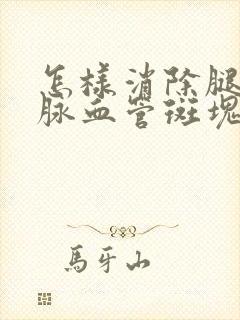 怎样消除腿
脉血管斑塊
馬牙山